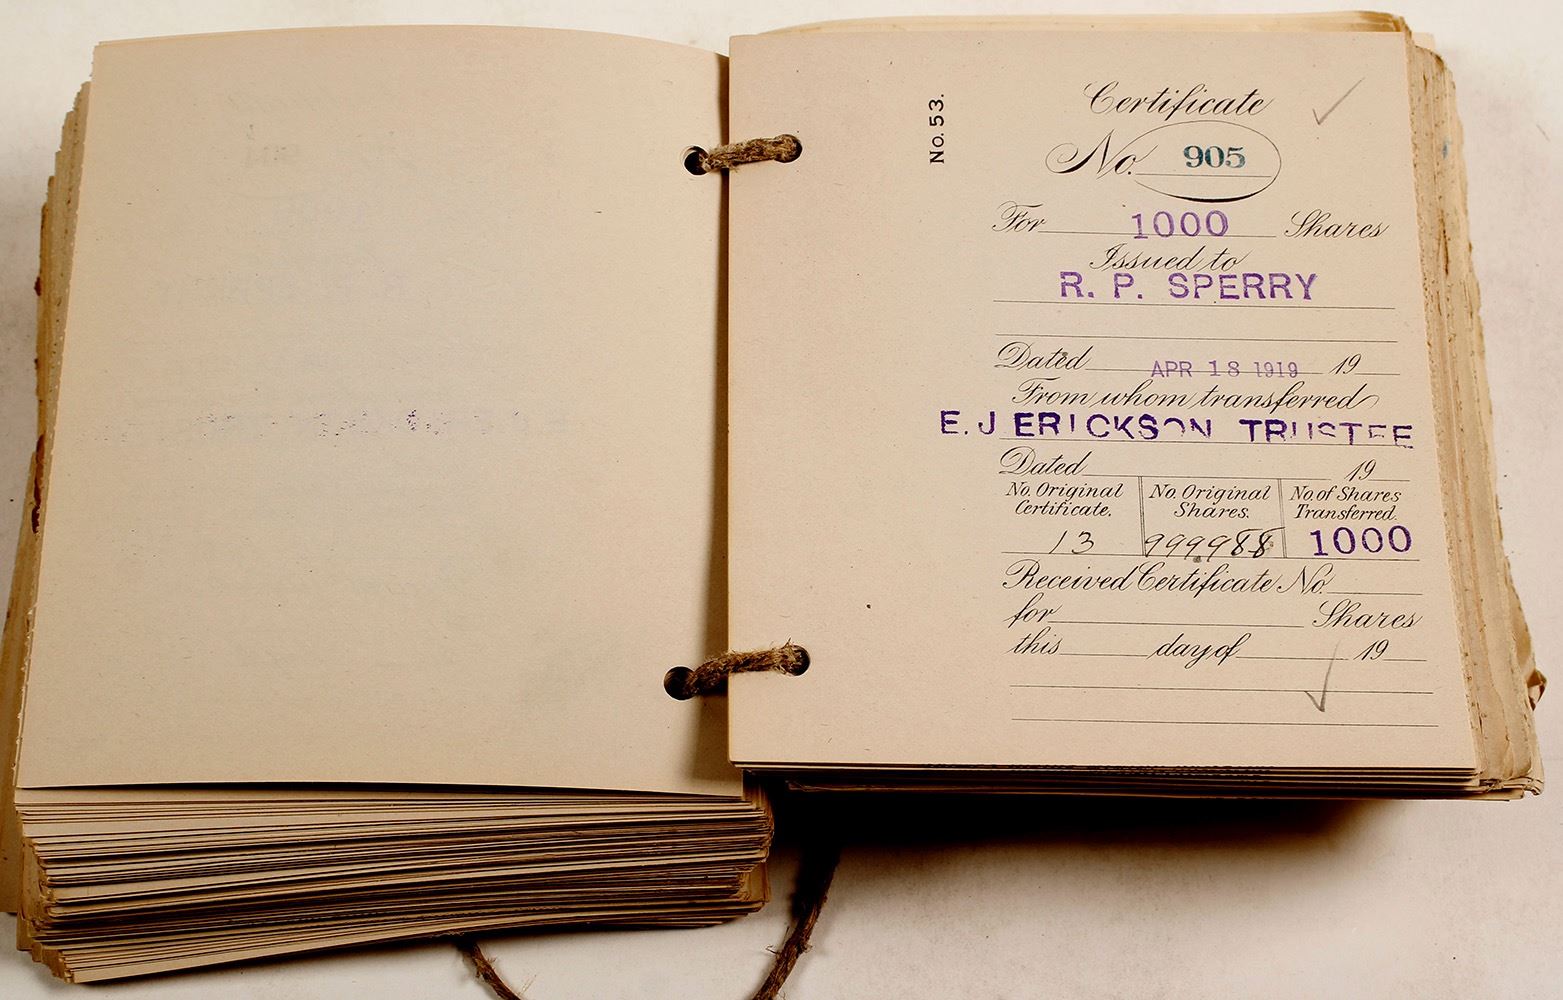 No. 53.
Certificate
No. 905
For 1000 Shares
Issued to
R. P. SPERRY
Dated APR 18 1919 19
From whom transferred
E. J ERICKSON TRUSTEE
Dated 19
No. Original Certificate. No. Original Shares. No. of Shares Transferred.
13 999988 1000
Received Certificate No.
for Shares
this day of 19